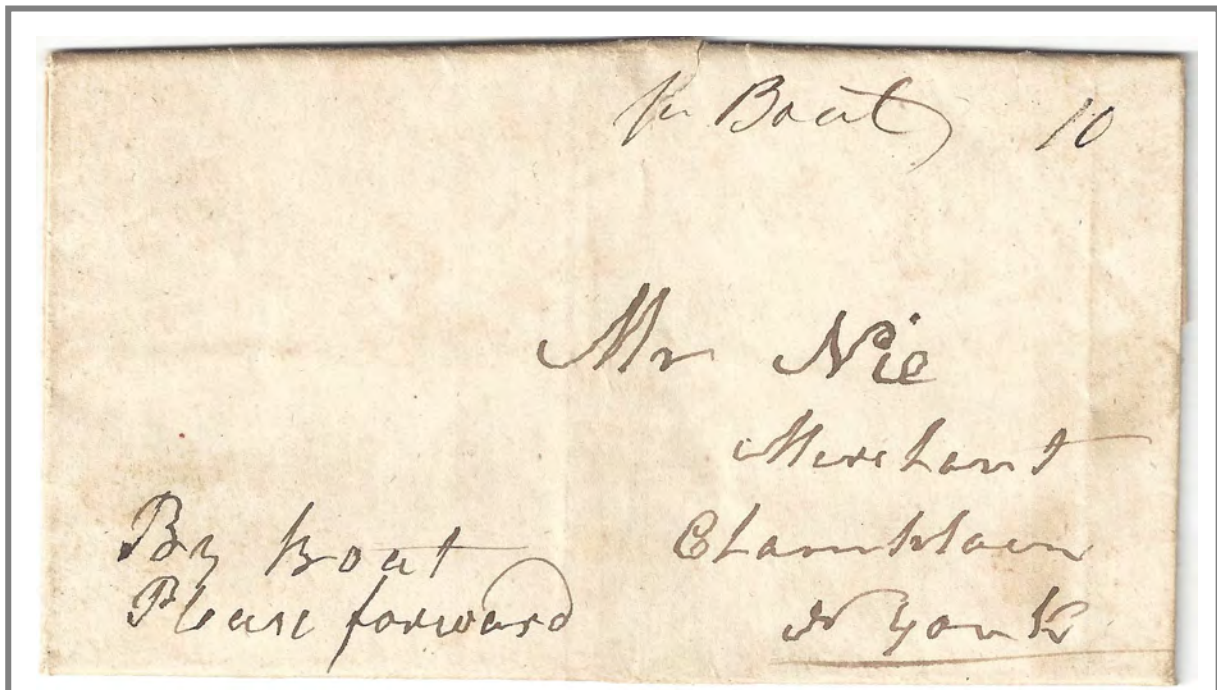 pr Boat 10
Mr Nie
Merchant
Champlain
N York
By Boat
Please forward